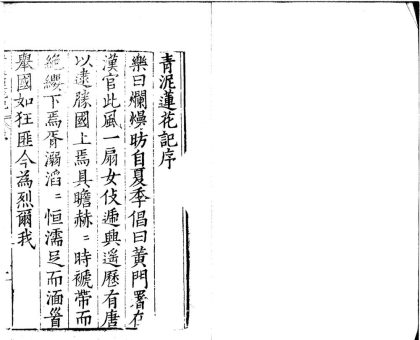 青泥蓮花記序
樂曰爛熳昉自夏季倡曰黃門署在
漢官此風一扇女伎遞興遥歷有唐
以逮勝國上焉具瞻赫〻時褫帶而
絶纓下焉胥溺滔〻恒濡足而湎首
舉國如狂匪今為烈爾我